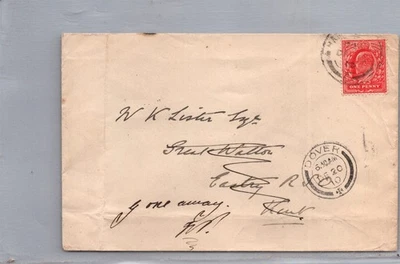 ONE PENNY
W K Lister Esqr
Great Walton
Eastry R
Kent
gone away.
DOVER
20